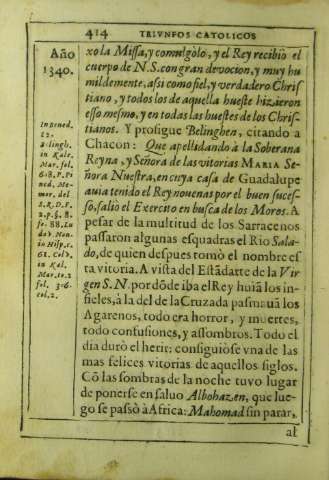 414 TRIVNFOS CATOLICOS
Año
1340.
In Bened.
12.
a lingh.
in Kale.
Mar. fol.
6-8. P. Pi
ned. Me-
mor. del
S.R.D.F.
2.p.§. 8.
fo. 88. Lu
do. Non-
io Hisp. c.
62. Colv.
in Kal.
Mar. to. 2
fol. 3-6.
col. 2.
xo la Missa, y comulgòlo, y el Rey recibiò el
cuerpo de N.S. con gran devocion, y muy hu
mildemente, assi como fiel, y verdadero Chris
tiano, y todos los de aquella hueste hizieron
esso mesmo, y en todas las huestes de los Chris-
tianos. Y prosigue Belinghen, citando a
Chacon: Que apellidando à la Soberana
Reyna, y Señora de las vitorias MARIA Se-
ñora Nuestra, en cuya casa de Guadalupe
auia tenido el Rey nouenas por el buen suces-
so, salio el Exercito en busca de los Moros. A
pesar de la multitud de los Sarracenos
passaron algunas esquadras el Rio Sala-
do, de quien despues tomò el nombre es
ta vitoria. A vista del Estãdarte de la Vir
gen S.N. por dõde iba el Rey huiã los in-
fieles, à la del de la Cruzada pasmauã los
Agarenos, todo era horror, y muertes,
todo confusiones, y assombros. Todo el
dia durò el herir: consiguiòse vna de las
mas felices vitorias de aquellos siglos.
Cõ las sombras de la noche tuvo lugar
de ponerse en saluo Albohazen, que lue-
go se passò à Africa: Mahomad sin parar,
al